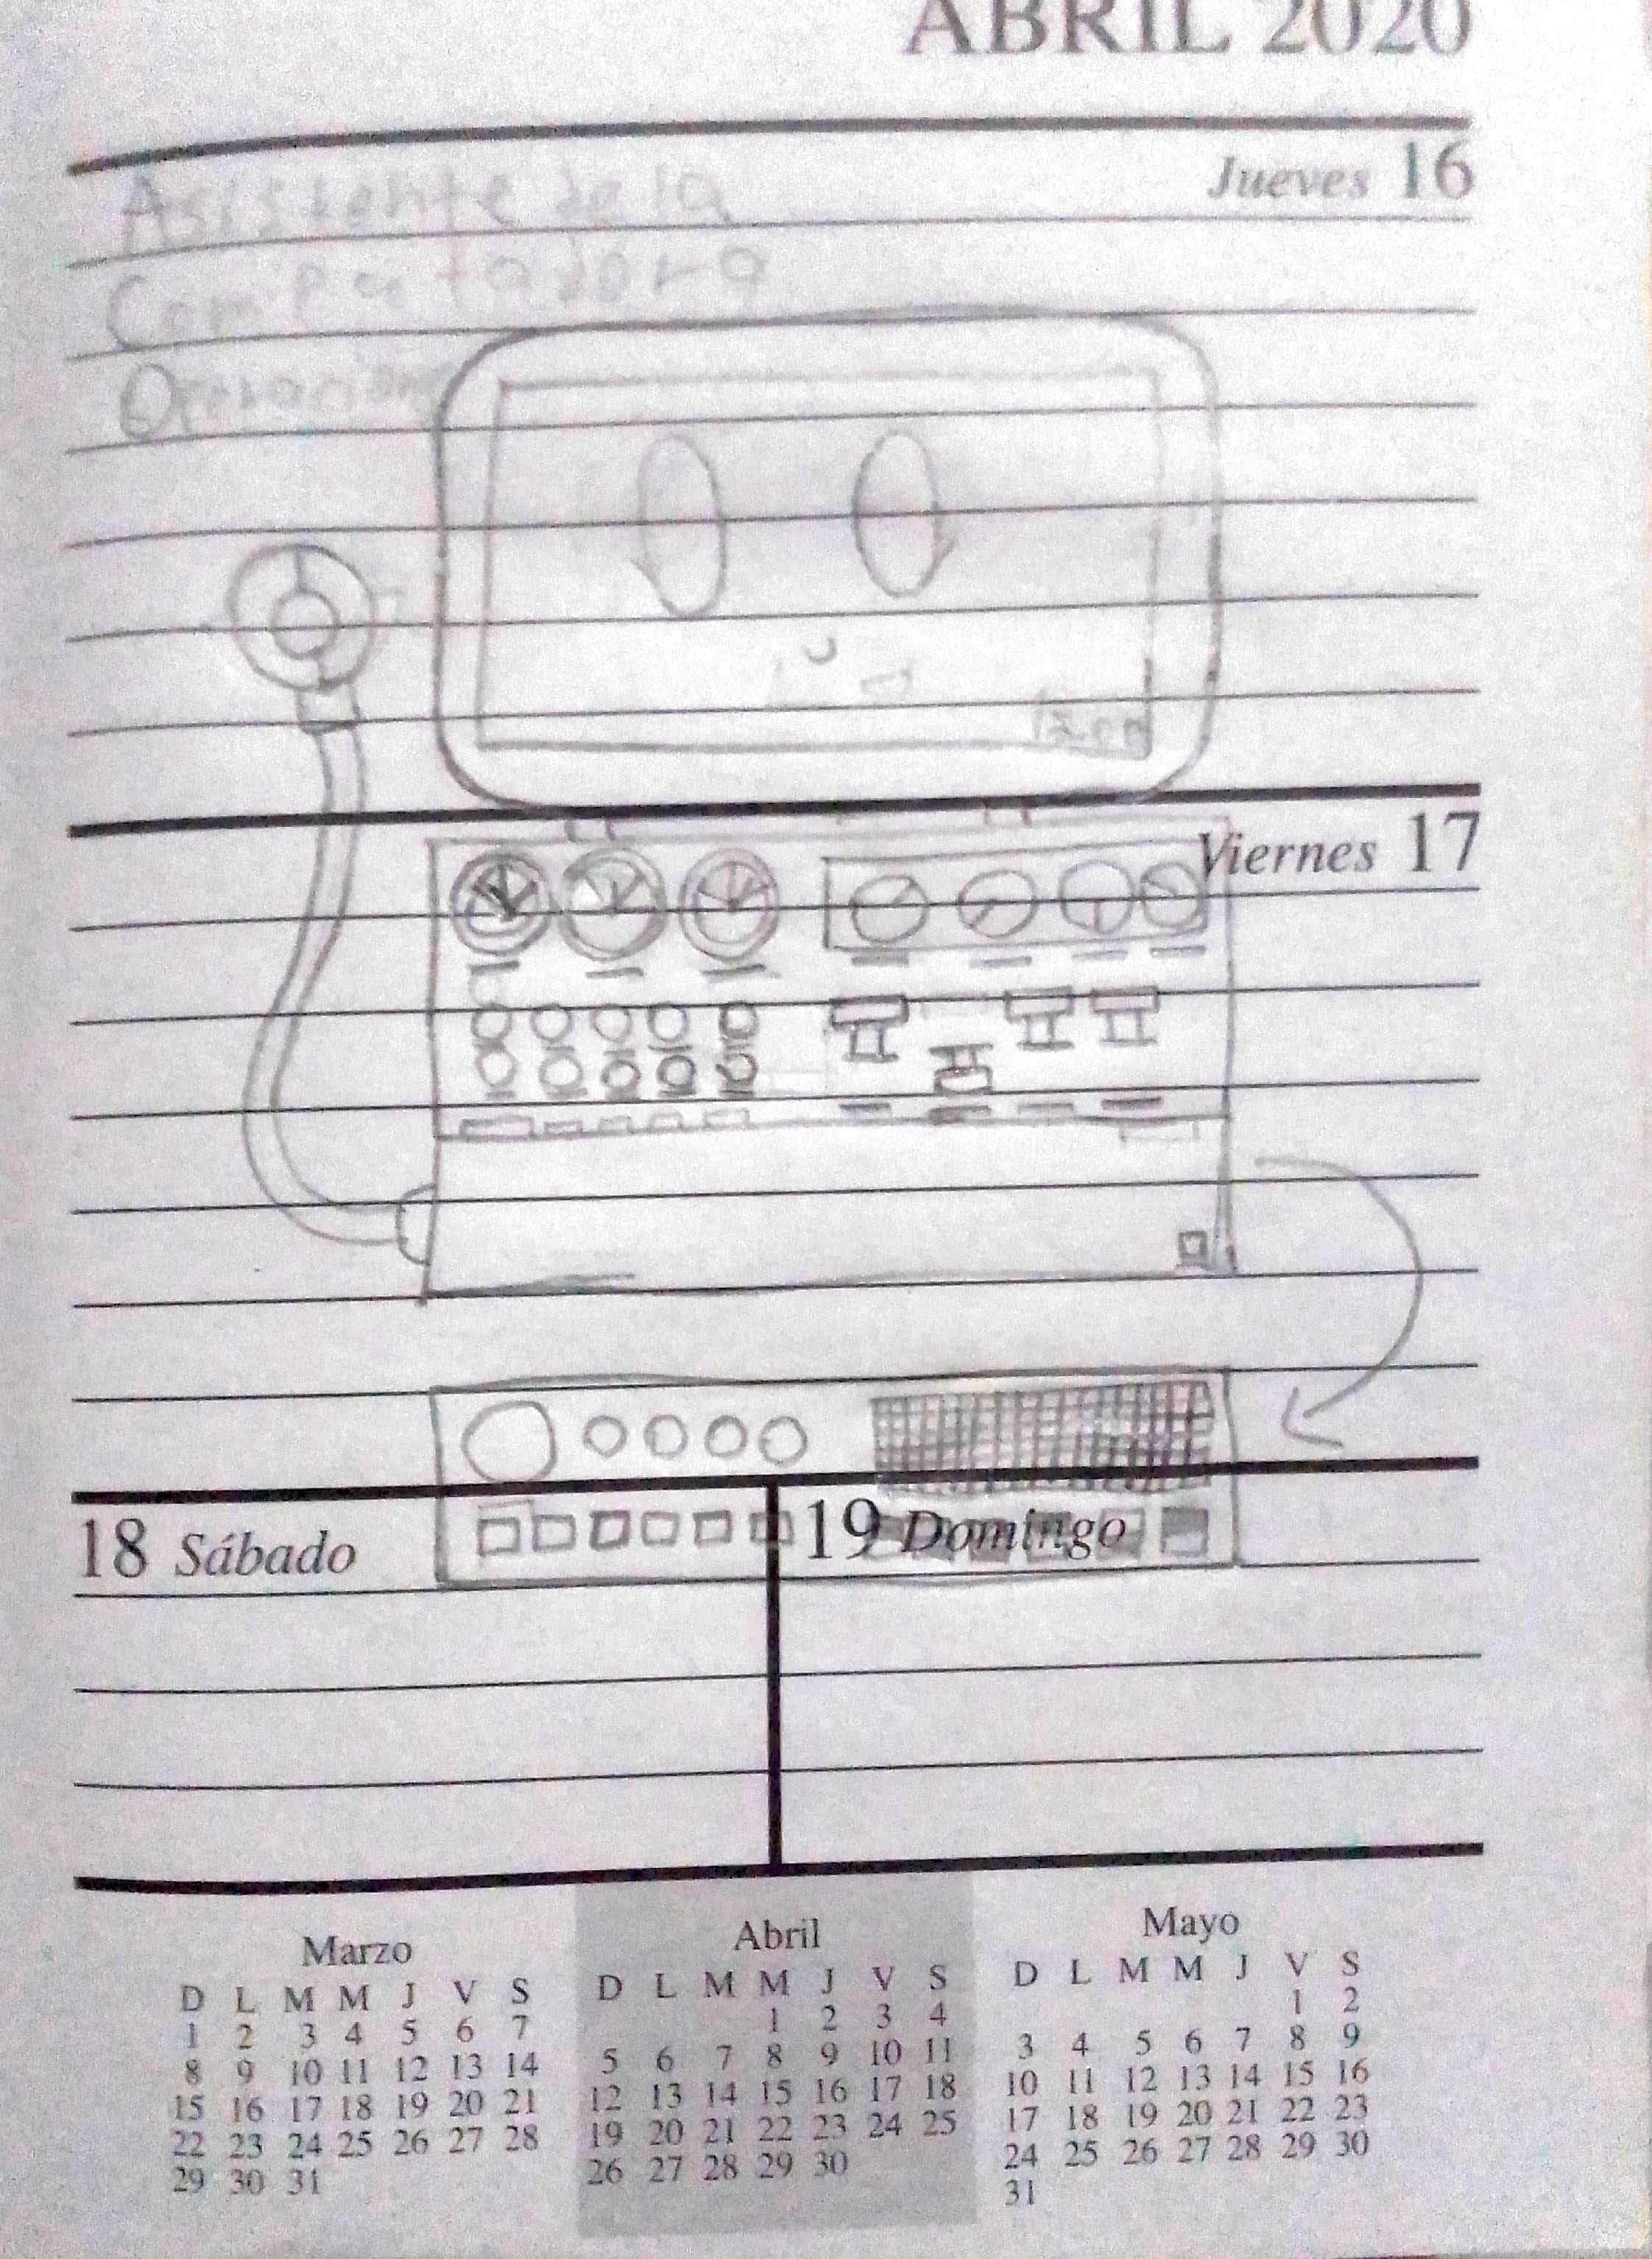 ABRIL 2020
Jueves 16
Asistente de la
Computadora
Operacion
Viernes 17
18 Sábado
19 Domingo
Marzo
D L M M J V S
1 2 3 4 5 6 7
8 9 10 11 12 13 14
15 16 17 18 19 20 21
22 23 24 25 26 27 28
29 30 31
Abril
D L M M J V S
1 2 3 4
5 6 7 8 9 10 11
12 13 14 15 16 17 18
19 20 21 22 23 24 25
26 27 28 29 30
Mayo
D L M M J V S
1 2
3 4 5 6 7 8 9
10 11 12 13 14 15 16
17 18 19 20 21 22 23
24 25 26 27 28 29 30
31